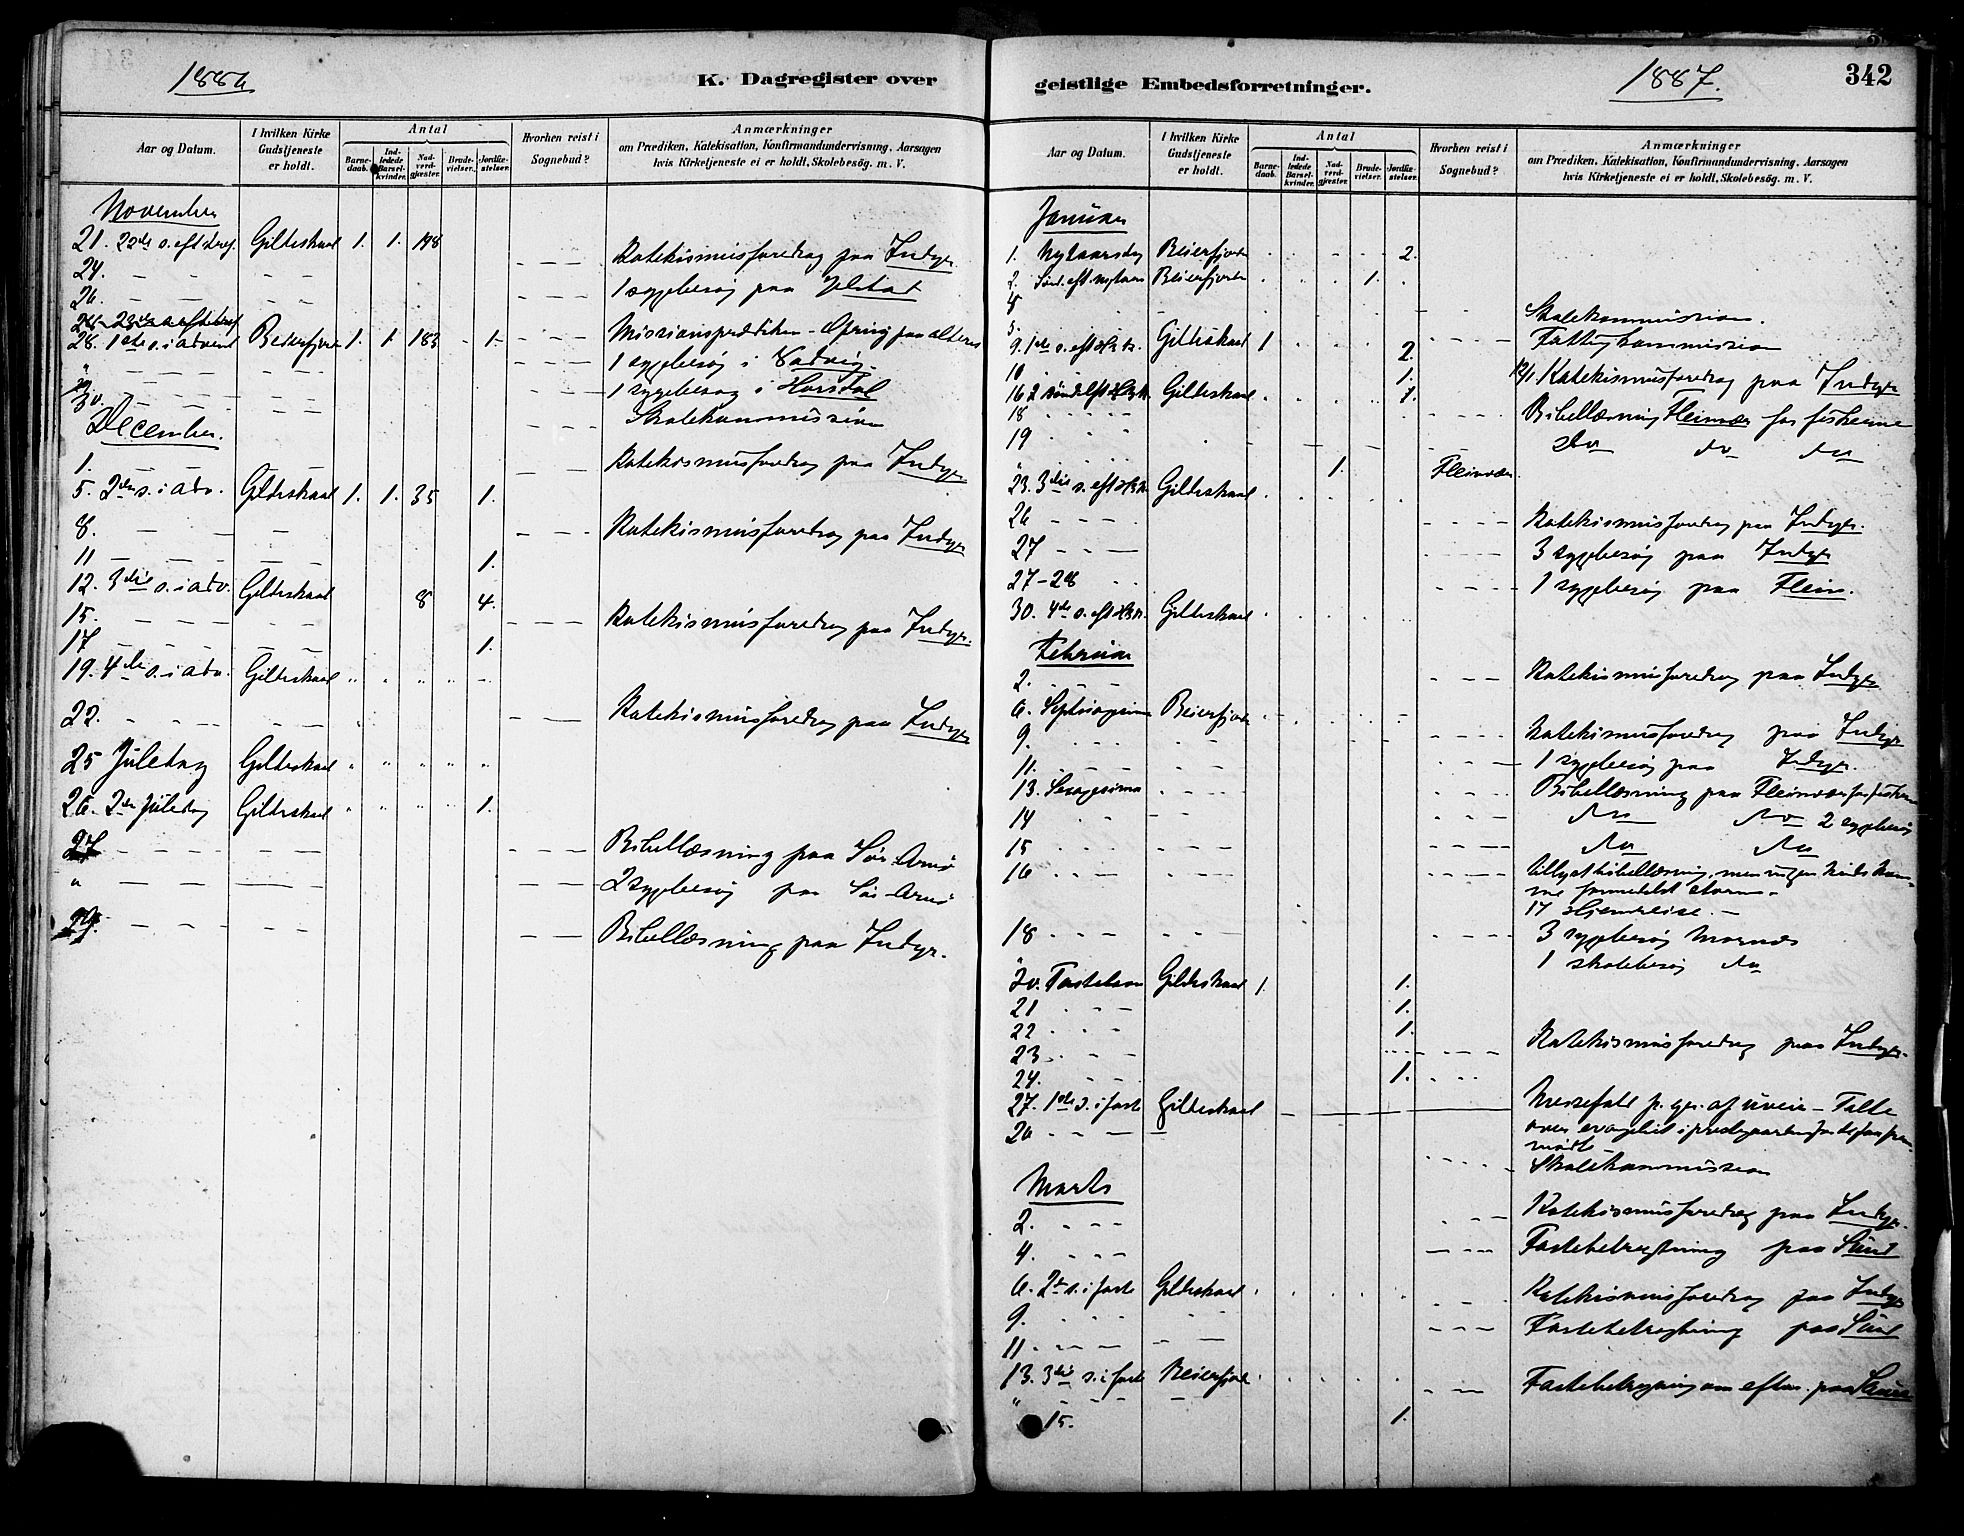 1886
K. Dagregister over
Aar og Datum.
I hvilken Kirke Gudstjeneste er holdt.
Antal
Barnedaab.
Indledede Barselkvinder.
Nadverdgjæster.
Brudevielser.
Jordfæstelser.
Hvorhen reist i Sognebud?
Anmærkninger
om Prædiken, Katekisation, Konfirmandundervisning, Aarsagen
hvis Kirketjeneste ei er holdt, Skolebesög. m. V.
November
21. 22de s. eft. tref. Gildeskaal 1. 1. 198
24. Katekismusforedrag paa Indyr.
26. 1 sygebesøg paa
28. 1ste s. i advent Beierfjorden 1. 1. 183 1. Missionsprædiken - Ofring paa alteret
" 1 sygebesøg i
1 sygebesøg i Horsdal
30. Skolekommission
December.
1. Katekismusforedrag paa Indyr
5. 2den s. i adv. Gildeskaal 1. 1. 35 1.
8. Katekismusforedrag paa Indyr
11 1.
12. 3die s. i adv. Gildeskaal 8 4.
15. Katekismusforedrag paa Indyr.
17 1.
19. 4de s. i adv. Gildeskaal
22. Katekismusforedrag paa Indyr
25 Juledag Gildeskaal
26. 2den Juledag Gildeskaal 1.
27 Bibellæsning paa Sør-Arnø
" 2 sygebesøg paa Sør-Arnø
29. Bibellæsning paa Indyr.
geistlige Embedsforretninger.
1887.
342
Aar og Datum.
I hvilken Kirke Gudstjeneste er holdt.
Antal
Barnedaab.
Indledede Barselkvinder.
Nadverdgjæster.
Brudevielser.
Jordfæstelser.
Hvorhen reist i Sognebud?
Anmærkninger
om Prædiken, Katekisation, Konfirmandundervisning, Aarsagen
hvis Kirketjeneste ei er holdt, Skolebesög. m. V.
Januar
1. Nytaarsdag Beierfjorden 2.
2. Sønd. eft. nytaar Beierfjorden 1.
Skolekommission.
5. Fattigkommission
9. 1ste s. eft. H3k. Gildeskaal 1 2.
10 1. 12/1 Katekismusforedrag paa Indyr
16 2 sønd. eft H3k. Gildeskaal 1.
18 Bibellæsning Fleinvær for fiskerne
19 do do do
" 1. Fleinvær.
23. 3die s. eft H3k. Gildeskaal
26 Katekismusforedrag paa Indyr.
27 3 sygebesøg paa Indyr
27-28 1 sygebesøg paa Flein.
30. 4de s. eft H3k. Gildeskaal
Februar
2. Katekismusforedrag paa Indyr
6. Septuagesima Beierfjorden
9. Katekismusforedrag paa Indyr
11. 1 sygebesøg paa Indyr.
13. Sexagesima Bibellæsning paa Fleinvær for fiskerne
14 do do 2 sygebesøg
15 do do
16 tillyst bibellæsning, men ingen kunde komme formedelst storm.
17 Hjemreise.
18 3 sygebesøg Mornæs
" 1 skolebesøg do
20. Fastelavn Gildeskaal 1. 1.
21 1.
22 1.
23 Katekismusforedrag paa Indyr.
24. 1.
27. 1ste s. i faste Gildeskaal Messefald p. gr. af uveir - Talte
over evangeliet i prestegaarden for de faa fremmødte
Skolekommission
Marts
2. Katekismusforedrag paa Indyr.
4. Fastebetragtning paa Sund
6. 2den s. i faste Gildeskaal
9. Katekismusforedrag paa Indyr
11. Fastebetragtning paa Sund
13. 3die s. i faste Beierfjorden
" Fastebetragtning om efterm. paa
15. 1.